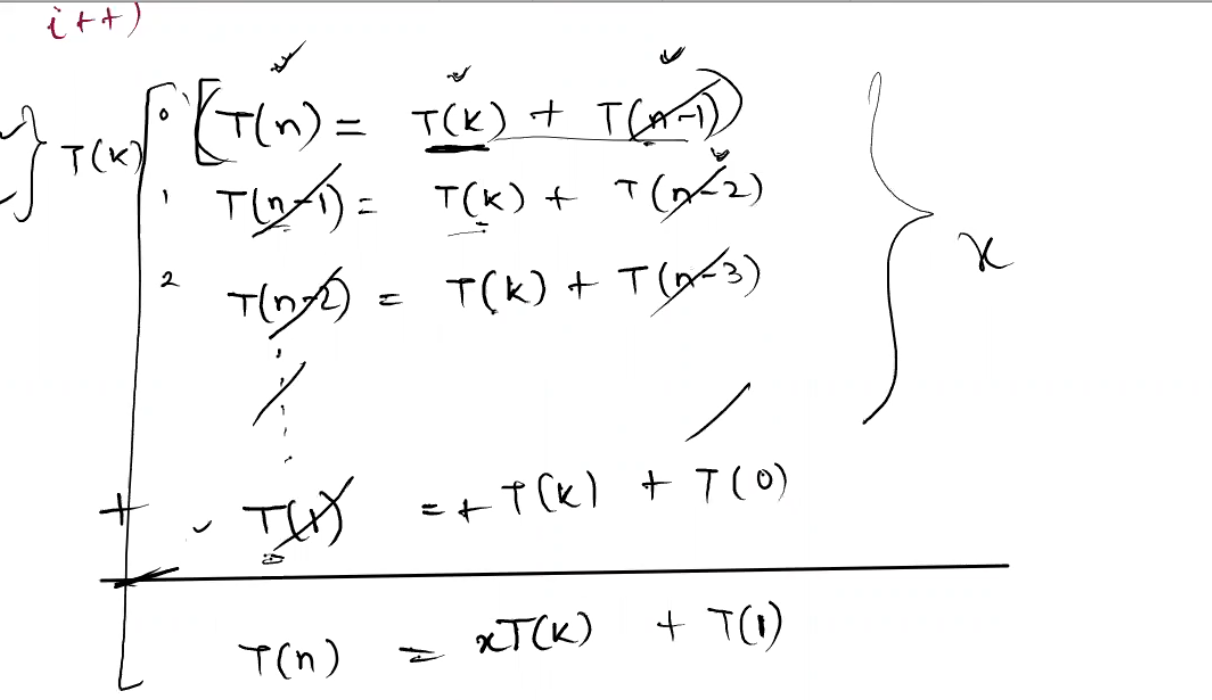 i++)
0 [T(n) = T(k) + T(n-1)]
} T(k)
1 T(n-1) = T(k) + T(n-2)
2 T(n-2) = T(k) + T(n-3)
} x
+ T(1) = + T(k) + T(0)
T(n) = xT(k) + T(1)